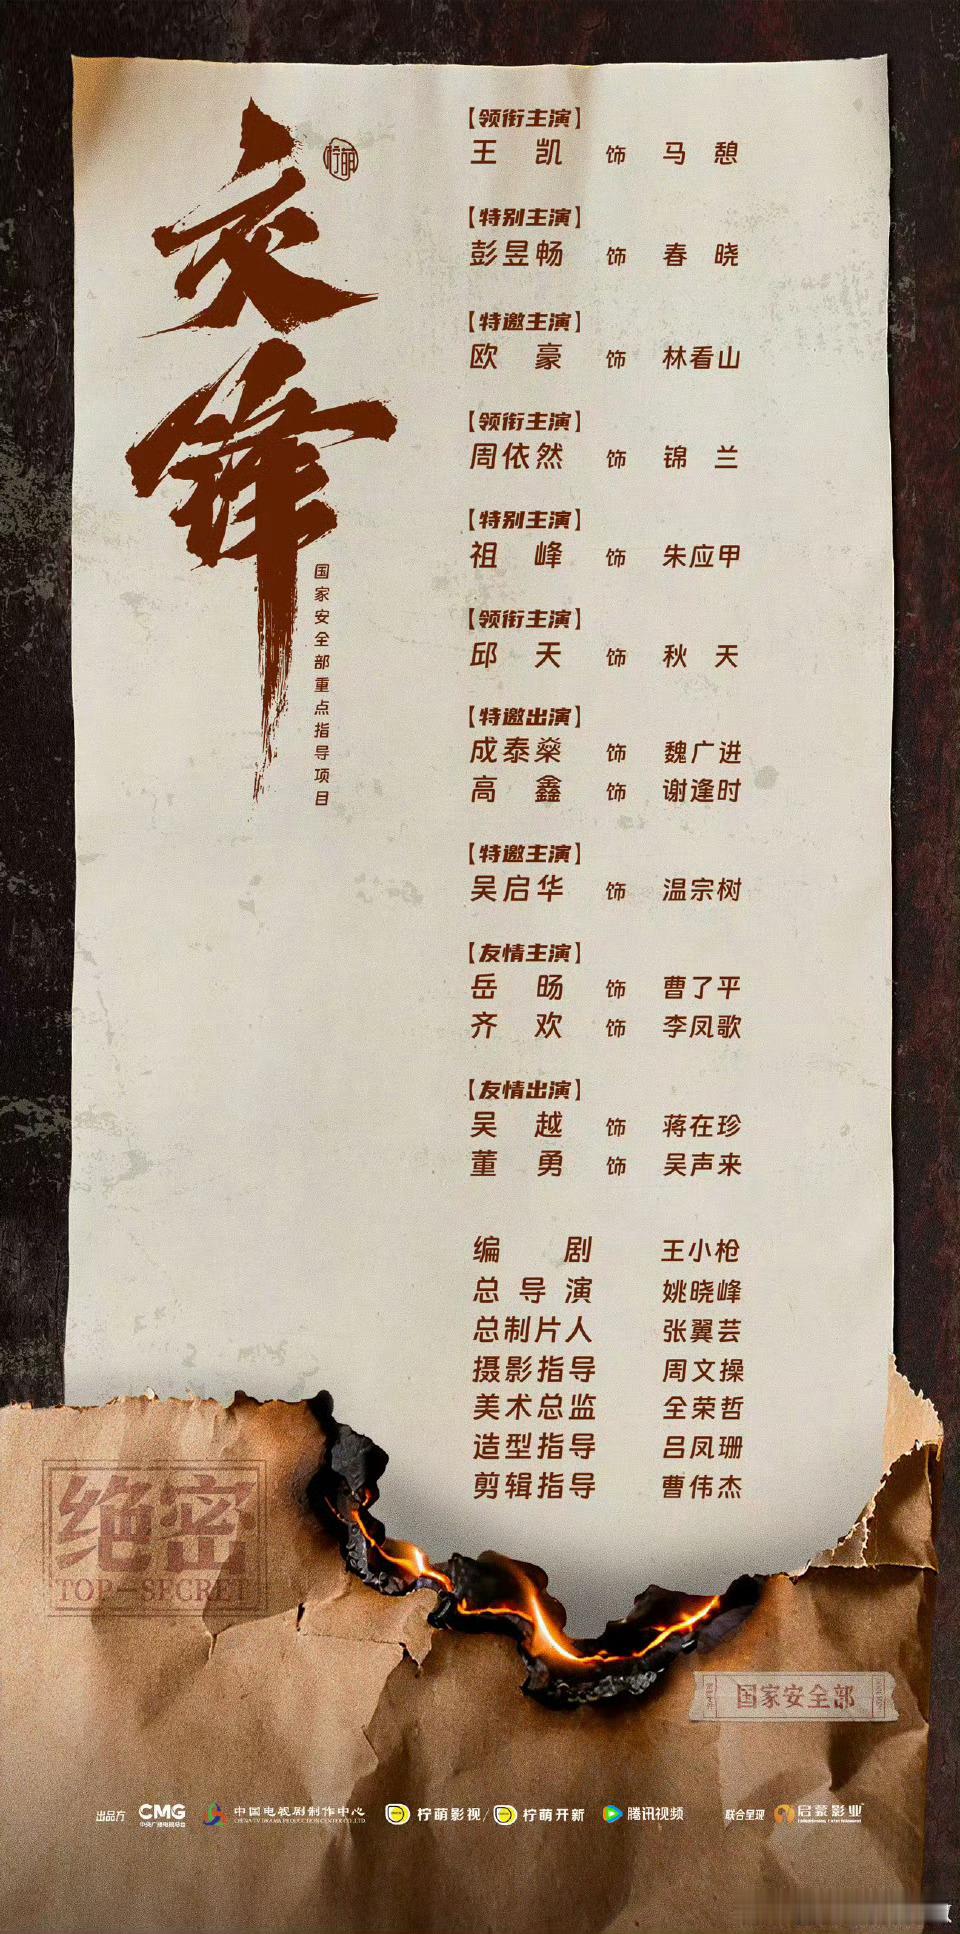 交锋
柠萌
国家安全部重点指导项目
【领衔主演】
王凯 饰 马憩
【特别主演】
彭昱畅 饰 春晓
【特邀主演】
欧豪 饰 林看山
【领衔主演】
周依然 饰 锦兰
【特别主演】
祖峰 饰 朱应甲
【领衔主演】
邱天 饰 秋天
【特邀出演】
成泰燊 饰 魏广进
高鑫 饰 谢逢时
【特邀主演】
吴启华 饰 温宗树
【友情主演】
岳旸 饰 曹了平
齐欢 饰 李凤歌
【友情出演】
吴越 饰 蒋在珍
董勇 饰 吴声来
编剧 王小枪
总导演 姚晓峰
总制片人 张翼芸
摄影指导 周文操
美术总监 全荣哲
造型指导 吕凤珊
剪辑指导 曹伟杰
绝密
TOP-SECRET
国家安全部
出品方 CMG 中央广播电视总台 中国电视剧制作中心 CHINA TV DRAMA PRODUCTION CENTER CO.,LTD 柠萌影视/柠萌开新 腾讯视频 联合呈现 启蒙影业